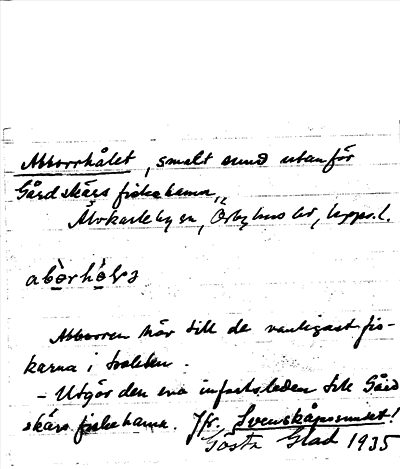 Abborrhålet, smalt sund utanför
Gårdskärs fiskehamn,
Älvkarleby sn, Örbyhus hd, Upps. l.
Abborren hör till de vanligast fis-
karna i trakten.
- Utgör den ena infartsleden till Gård
skärs fiskehamn. Jfr. Svenskåpsundet!
Gösta Glad 1935